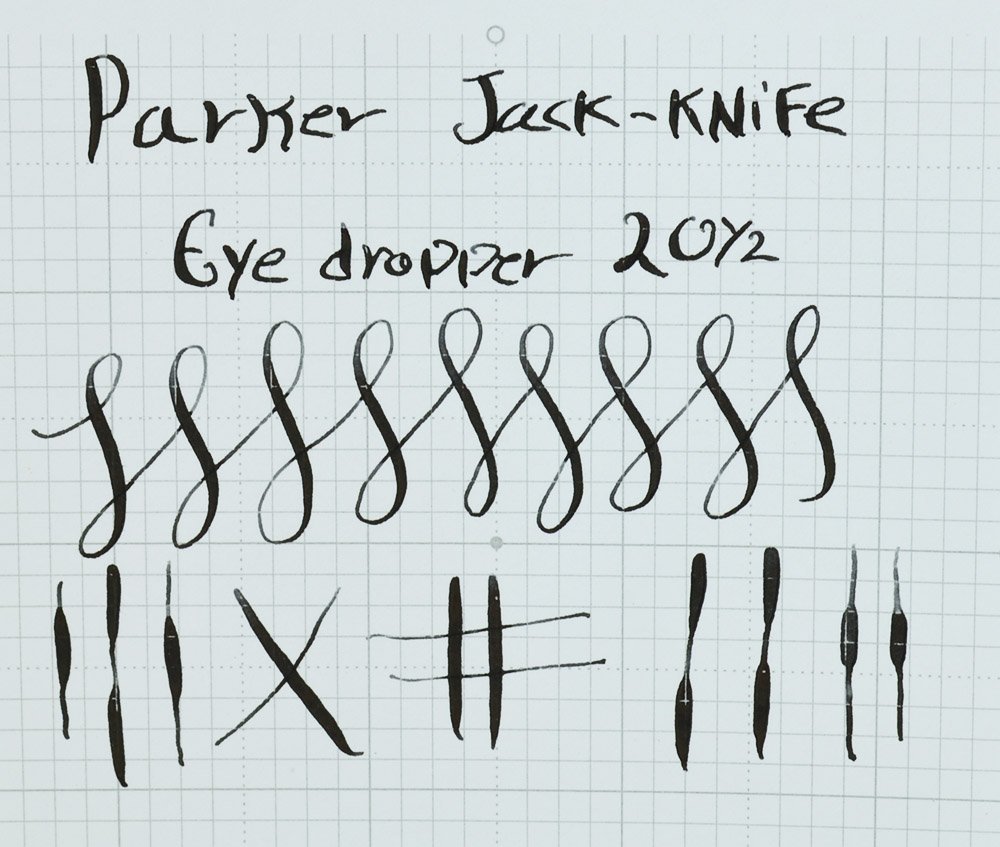 Parker Jack-Knife
Eye dropper 20½